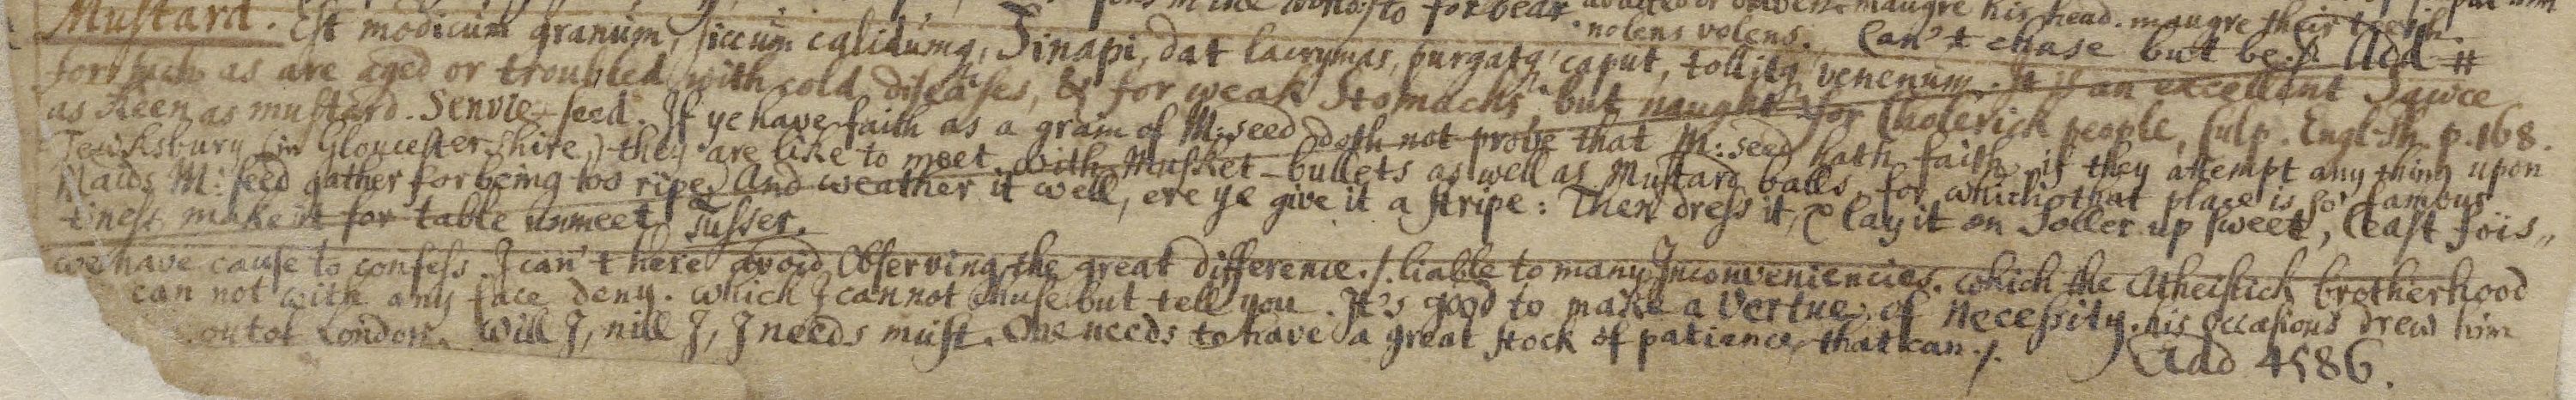 to forbear maugre his head. maugre their teeth
nolens volens. Can't chuse but be ./. Add #
Mustard. Est modicum granum, siccum calidumq, Sinapi, dat lacrymas, purgatq caput, tollitq venenum. It is an excellent Sawce
for such as are aged or troubled with cold diseases, & for weak Stomachs but naught for Cholerick people, Culp. Engl-Ph. p. 168.
as Keen as mustard. Senvie-seed. If ye have faith as a grain of M: seed doth not prove that M: seed hath faith. if they attempt any thing upon
Tewksbury (in Gloucester-shire,) they are like to meet with Musket-bullets as well as Mustard balls, for which that place is so famous
Maids M: seed gather for being too ripe, And weather it well, ere ye give it a stripe: Then dress it, & lay it on Soller up sweet, least fois,,
tiness make it for table unmeet Tusser.
we have cause to confess. I can't here avoid Observing the great difference. /. liable to many Inconveniencies. which the Atheistick brotherhood
can not with any face deny. which I cannot chuse but tell you. It's good to make a Vertue of Necessity. his occasions drew him
out of London. Will I, nill I, I needs must. One needs to have a great stock of patience that can ./. Add 4586.